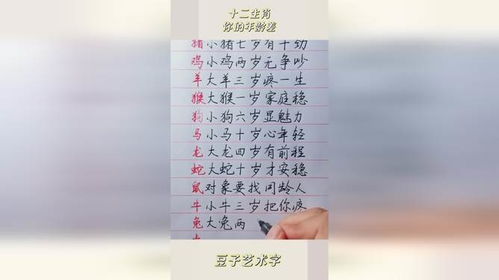 十二生肖
你的年龄差
猪小猪七岁有干劲
鸡小鸡两岁无争吵
羊大羊三岁疼一生
猴大猴一岁家庭稳
狗小狗六岁显魅力
马小马十岁心年轻
龙大龙四岁有前程
蛇大蛇十岁才安稳
鼠对象要找同龄人
牛小牛三岁把你疼
兔大兔两
豆子艺术字